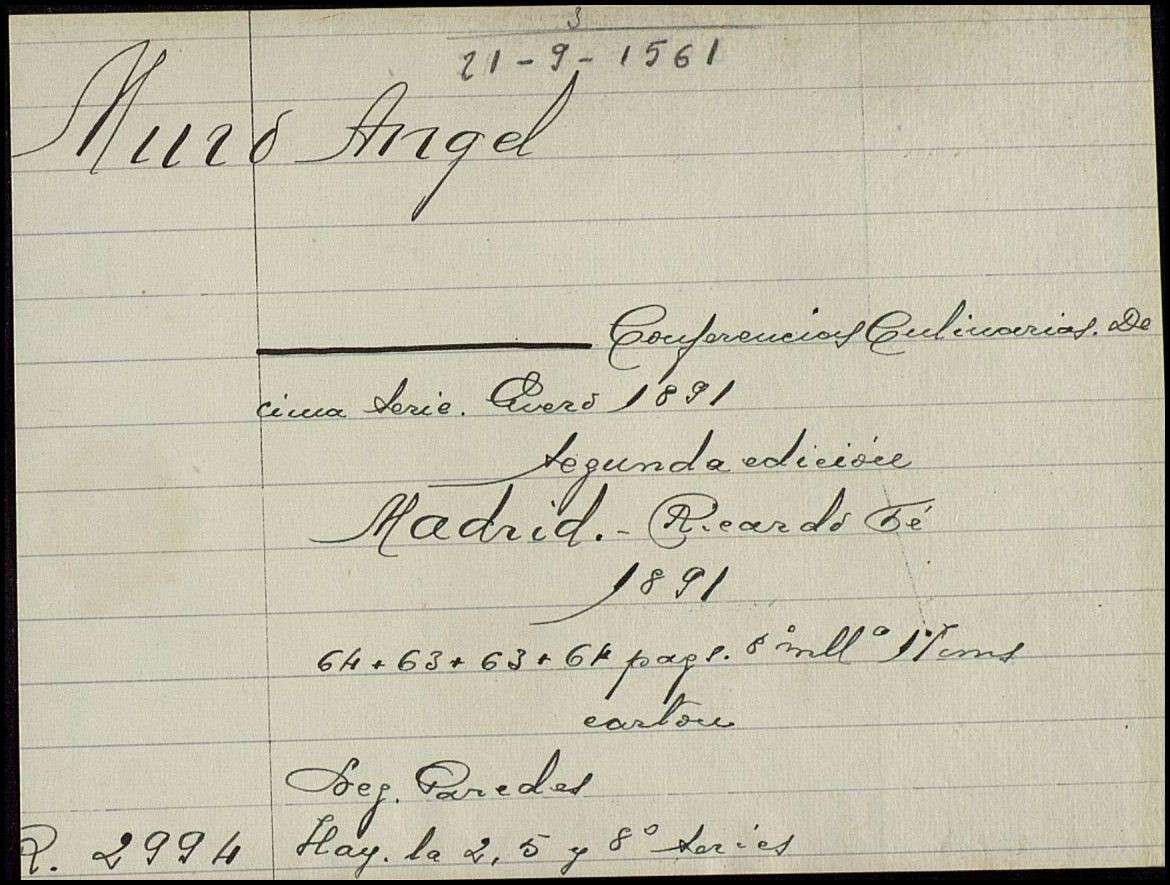 3
21-9-1561
Muro Angel
Conferencias Culinarias. De
cima Serie. Enero 1891
Segunda edición
Madrid.- Ricardo Fé
1891
64+63+63+64 pags. 8º mllª 17cms
carton
Leg. Paredes
R. 2994 Hay. la 2, 5 y 8º series